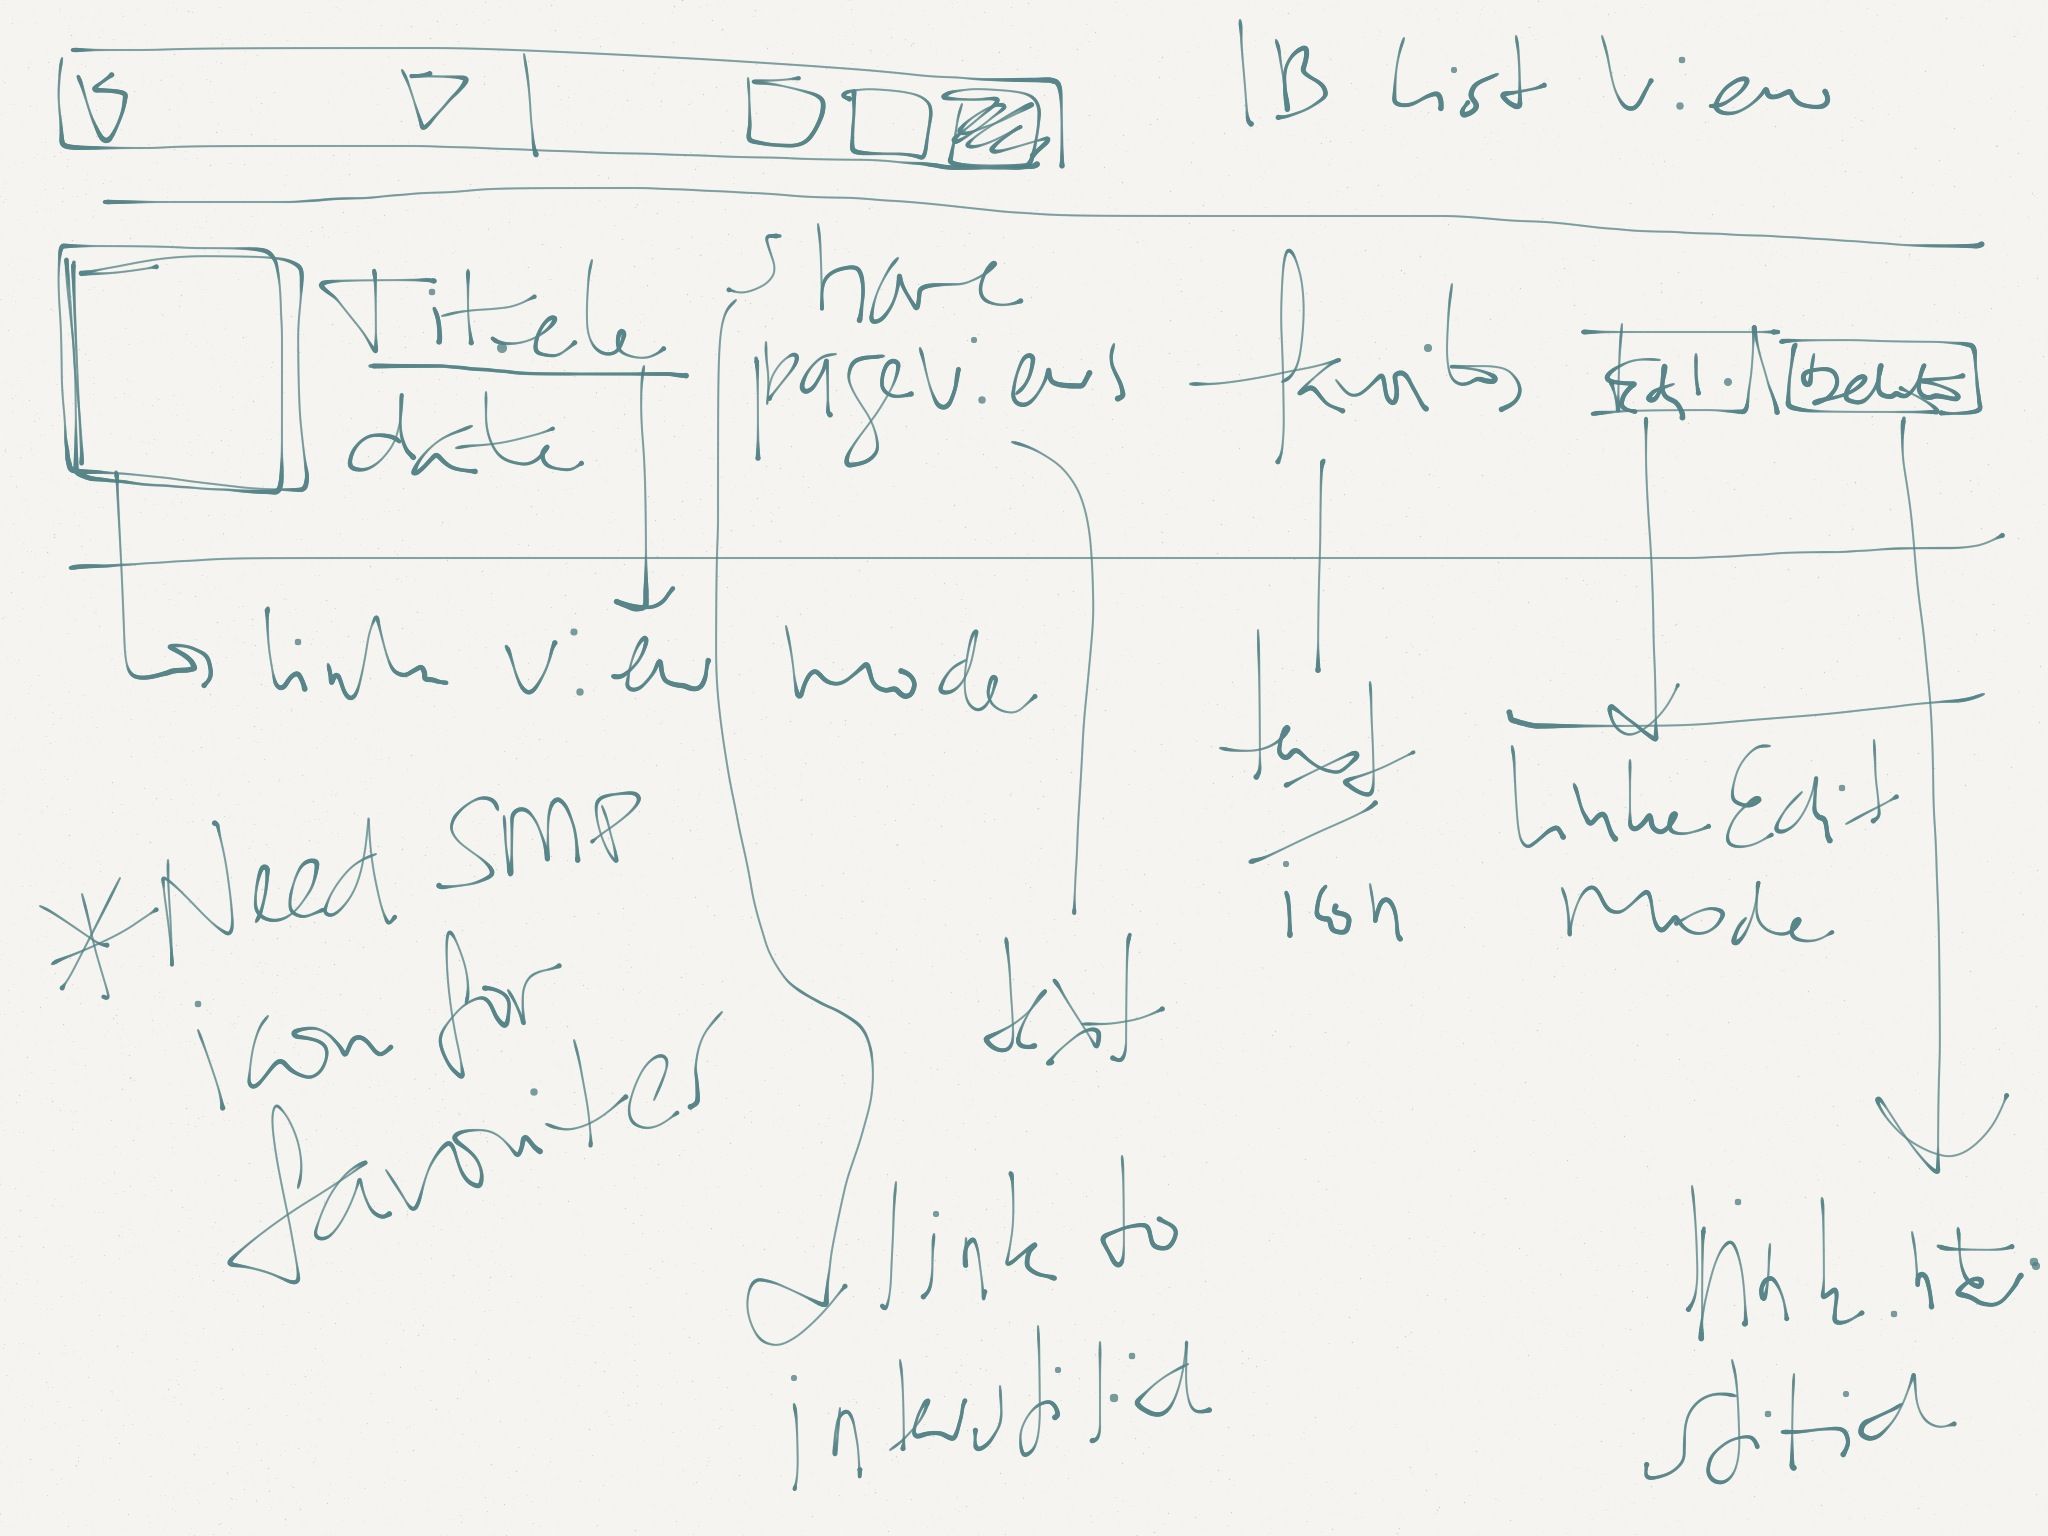 IB List View
Title
date
share
pageviews
Edit
Delete
link view mode
text
icon
Link Edit
mode
* Need SMP
icon for
favorites
text
link to
link